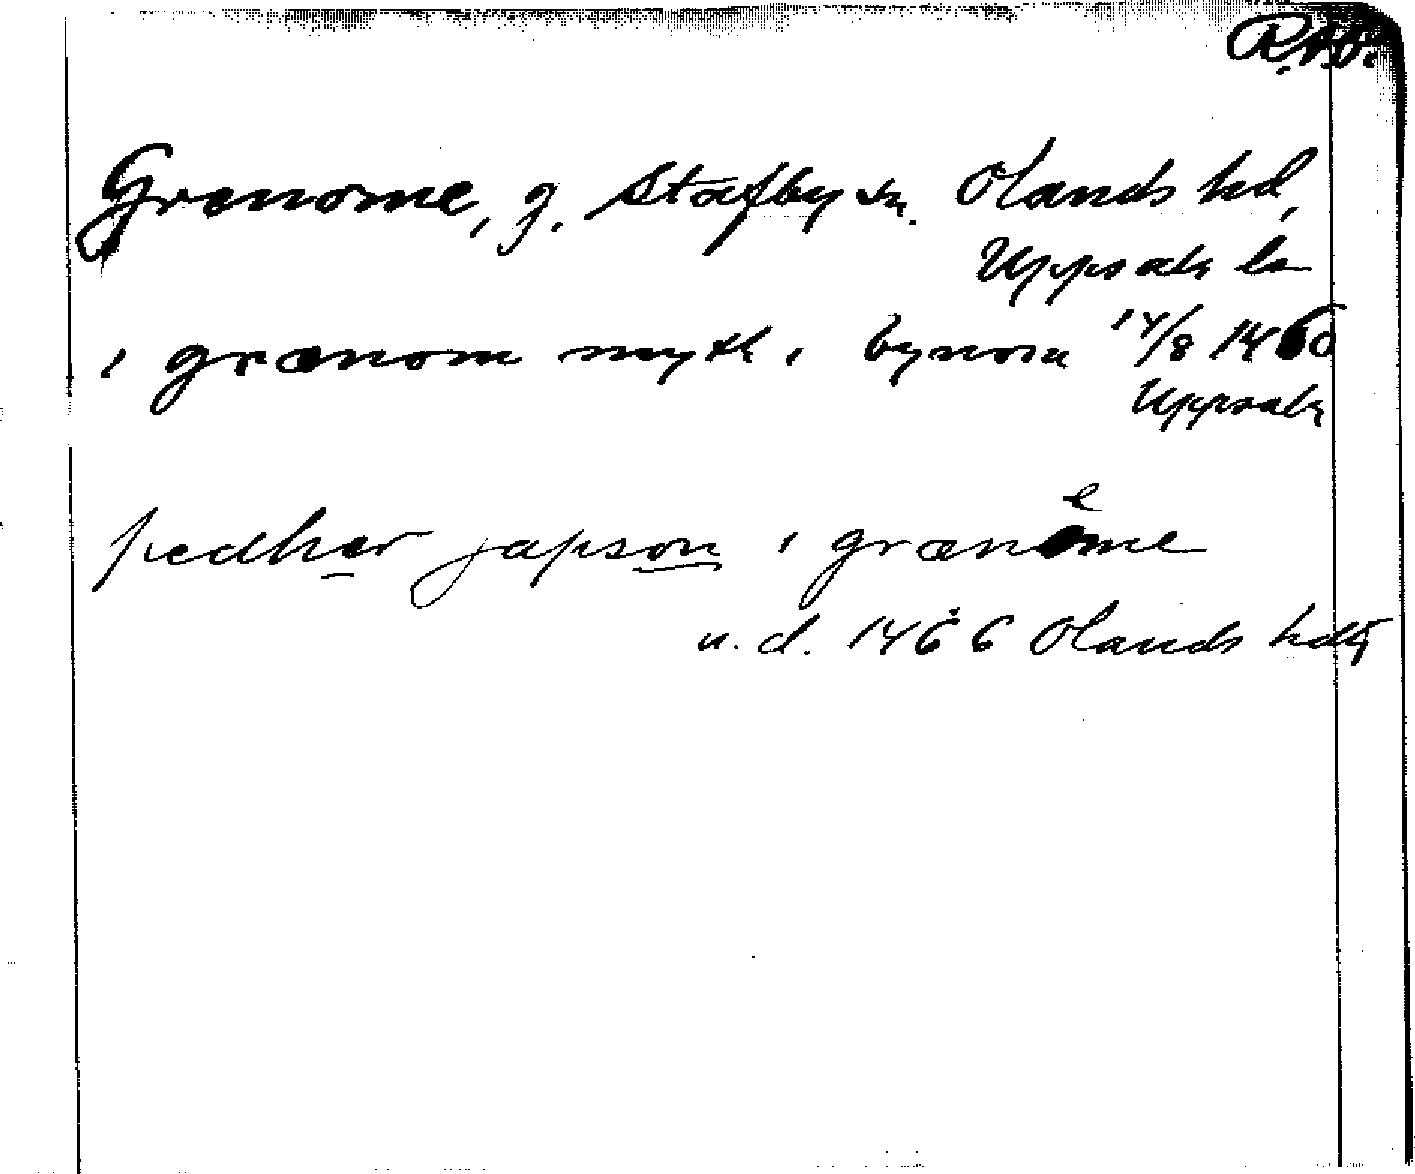 R.A.P.
Grenome, g. Stafby sn. Olands hd,
Uppsala ln
i grænom mykt i bynom 14/8 1460
Uppsala
pedher japson i grænome
e
u. d. 1466 Olands hdg